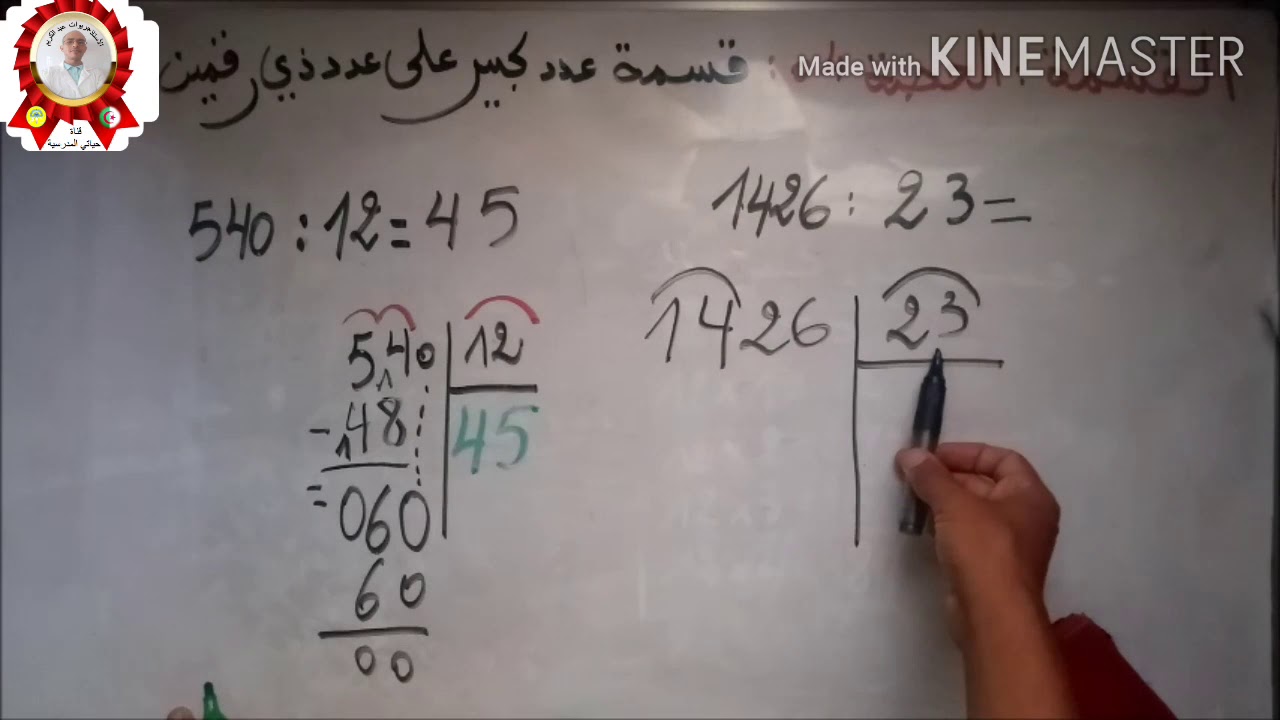 الأستاذ حريوات عبد الكريم
قناة
حياتي المدرسية
Made with KINEMASTER
القسمة : قسمة عدد كبير على عدد ذي رقمين
540 : 12 = 45
540 12
- 48 45
= 060
60
00
1426 : 23 =
1426 23